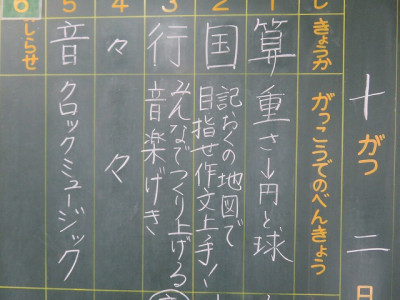 十がつ 二日
じ きょうか がっこうでのべんきょう
1 算 重さ→円と球
2 国 記おくの地図で
目指せ作文上手!
3 行 みんなでつくり上げる
音楽げき
4 々 々
5 音 クロックミュージック
6
しらせ